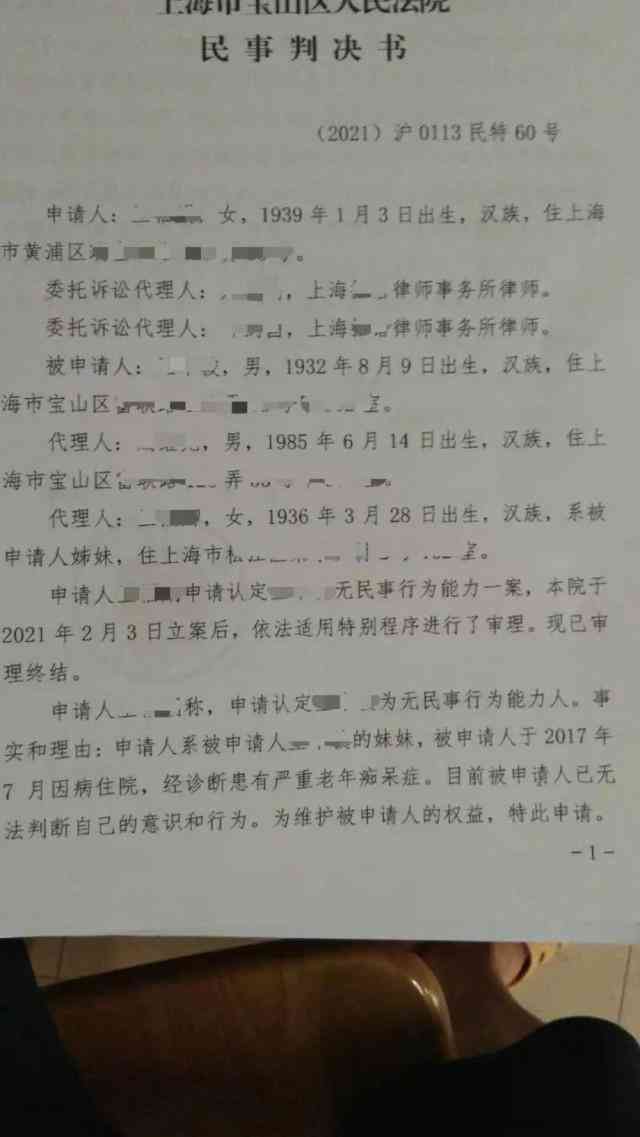 上海市宝山区人民法院
民事判决书
（2021）沪0113民特60号
申请人： 女，1939年1月3日出生，汉族，住上海
市黄浦区 。
委托诉讼代理人： ，上海 律师事务所律师。
委托诉讼代理人： ，上海 律师事务所律师。
被申请人： ，男，1932年8月9日出生，汉族，住上
海市宝山区 。
代理人： ，男，1985年6月14日出生，汉族，住上
海市宝山区 弄 。
代理人： ，女，1936年3月28日出生，汉族，系被
申请人姊妹，住上海市松 。
申请人 申请认定 无民事行为能力一案，本院于
2021年2月3日立案后，依法适用特别程序进行了审理。现已审
理终结。
申请人 称，申请认定 为无民事行为能力人。事
实和理由：申请人系被申请人 的妹妹，被申请人于2017年
7月因病住院，经诊断患有严重老年痴呆症。目前被申请人已无
法判断自己的意识和行为。为维护被申请人的权益，特此申请。
-1-